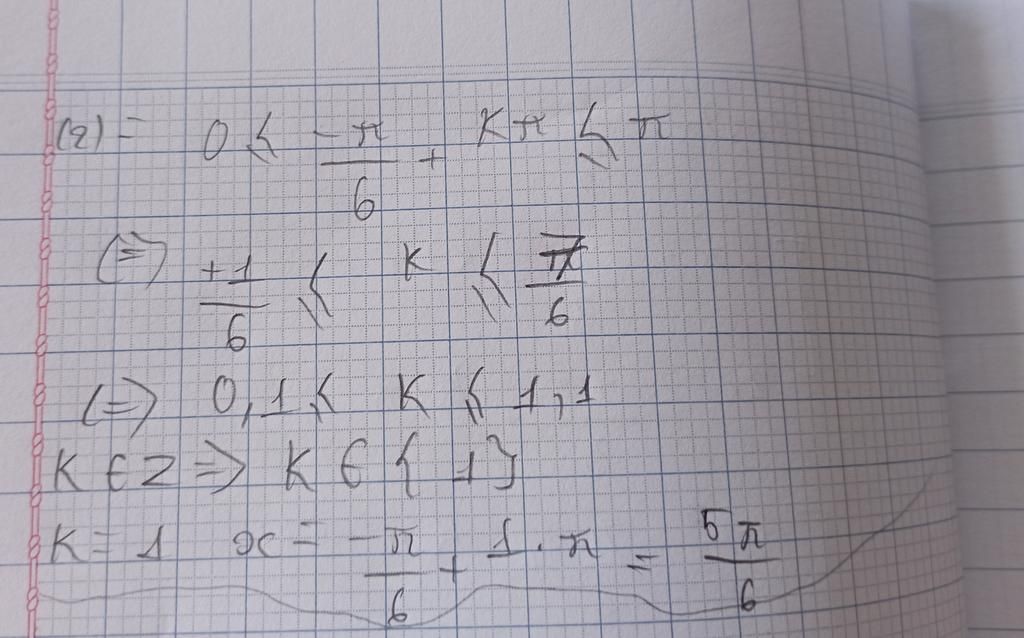 (2) = 0 ≤ -π/6 + Kπ ≤ π
(=) +1/6 ≤ K ≤ 7/6
(=) 0,1 ≤ K ≤ 1,1
K ∈ Z => K ∈ {1}
K = 1 x = -π/6 + 1 . π = 5π/6